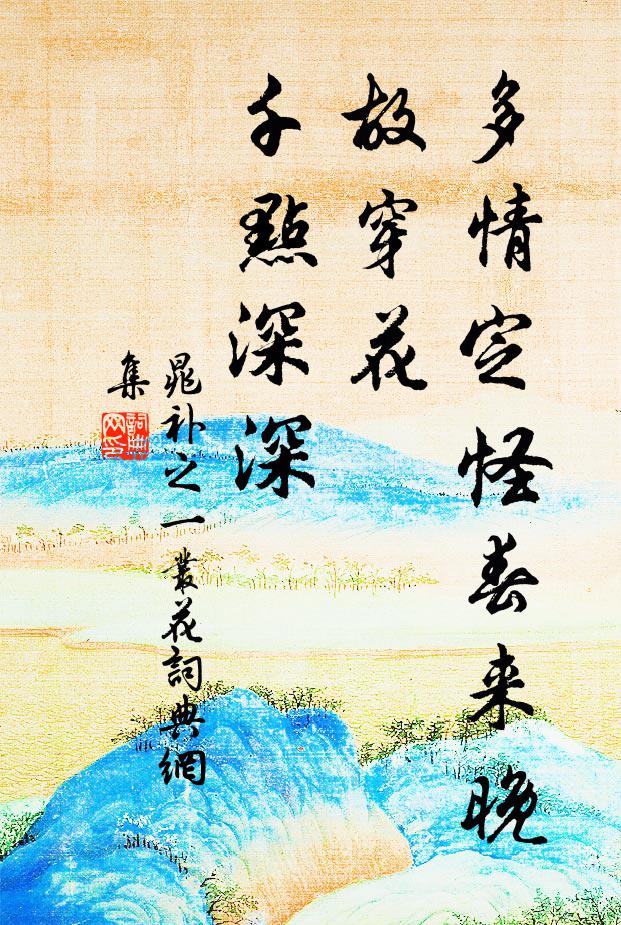 多情定怪春来晚
故穿花
千點深深
晁补之一叢花詞典網
集
詞典
网